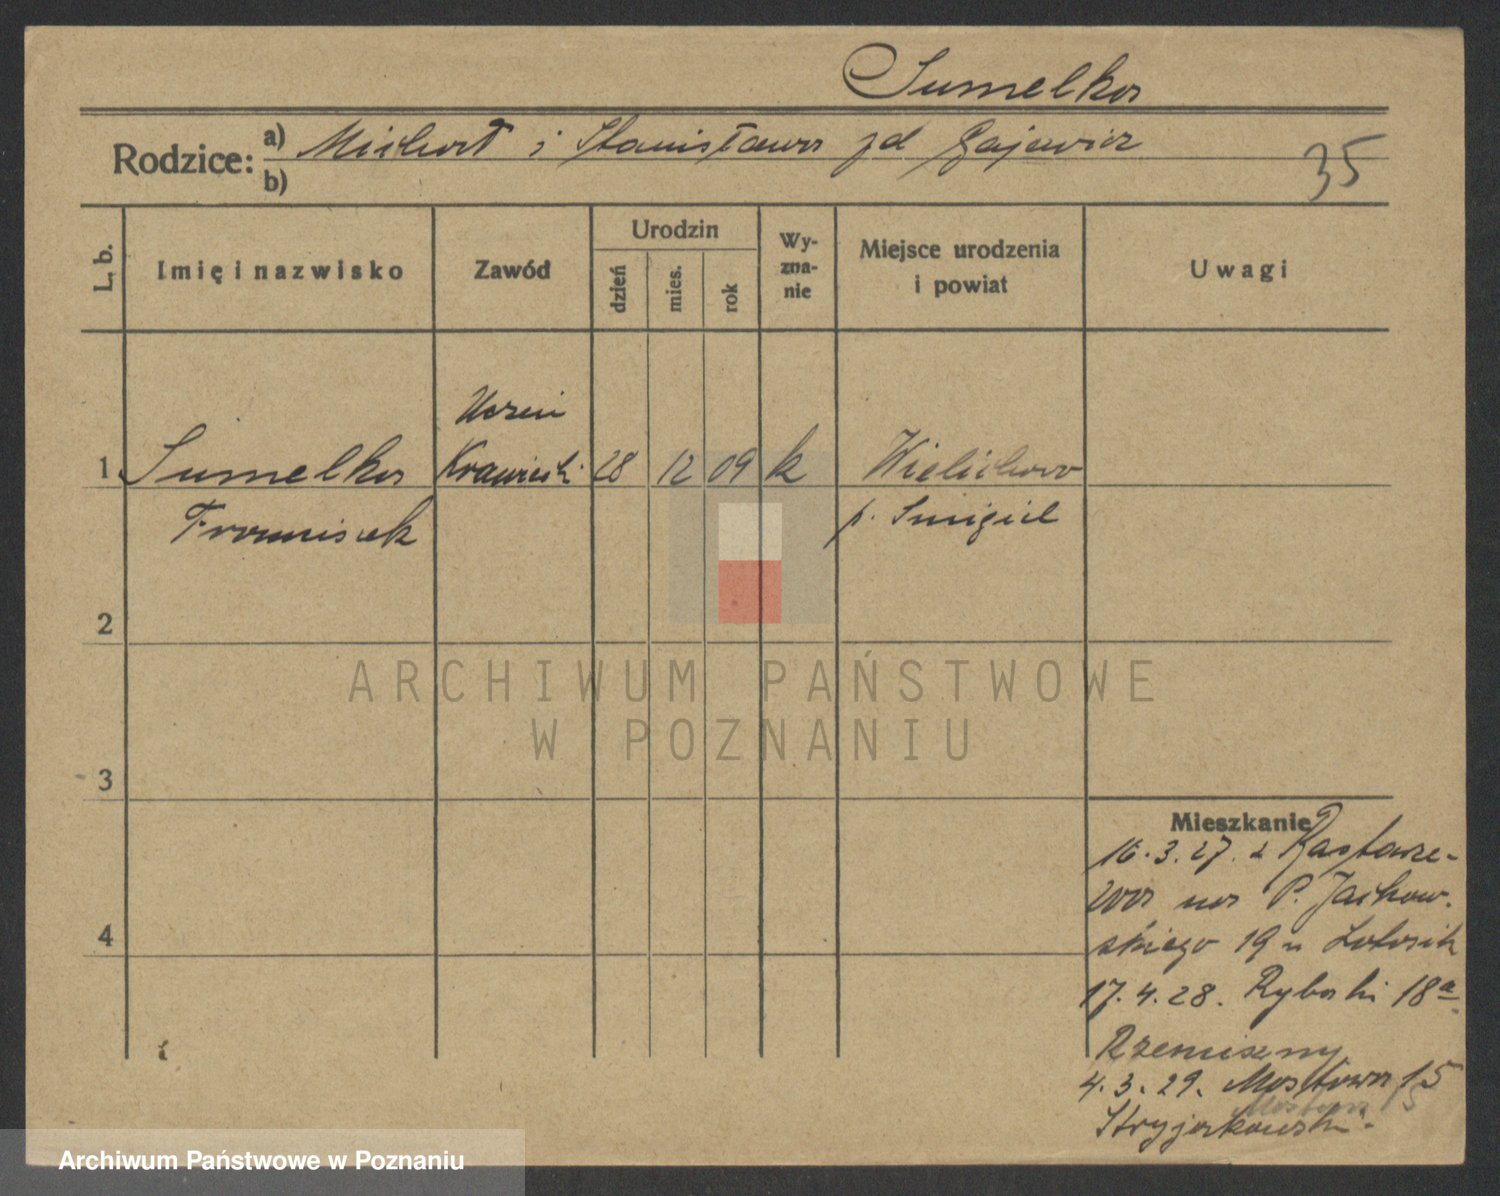 Sumelka
Rodzice: a) Michał i Stanisława zd Gajewicz
b)
35
L. b.
Imię i nazwisko
Zawód
Urodzin
dzień
mies.
rok
Wy-
zna-
nie
Miejsce urodzenia
i powiat
Uwagi
Uczeń
1 Sumelka Krawiecki 28 12 09 k Wielichowo
Franciszek p. Śmigiel
2
3
4
Mieszkanie
16.3.27. z
na P. Jackow-
skiego 19 u
17.4.28. Rybaki 18a
4.3.29. Mostowa 15
Mostowa 5
Stryjakowski
ARCHIWUM PAŃSTWOWE
W POZNANIU
Archiwum Państwowe w Poznaniu